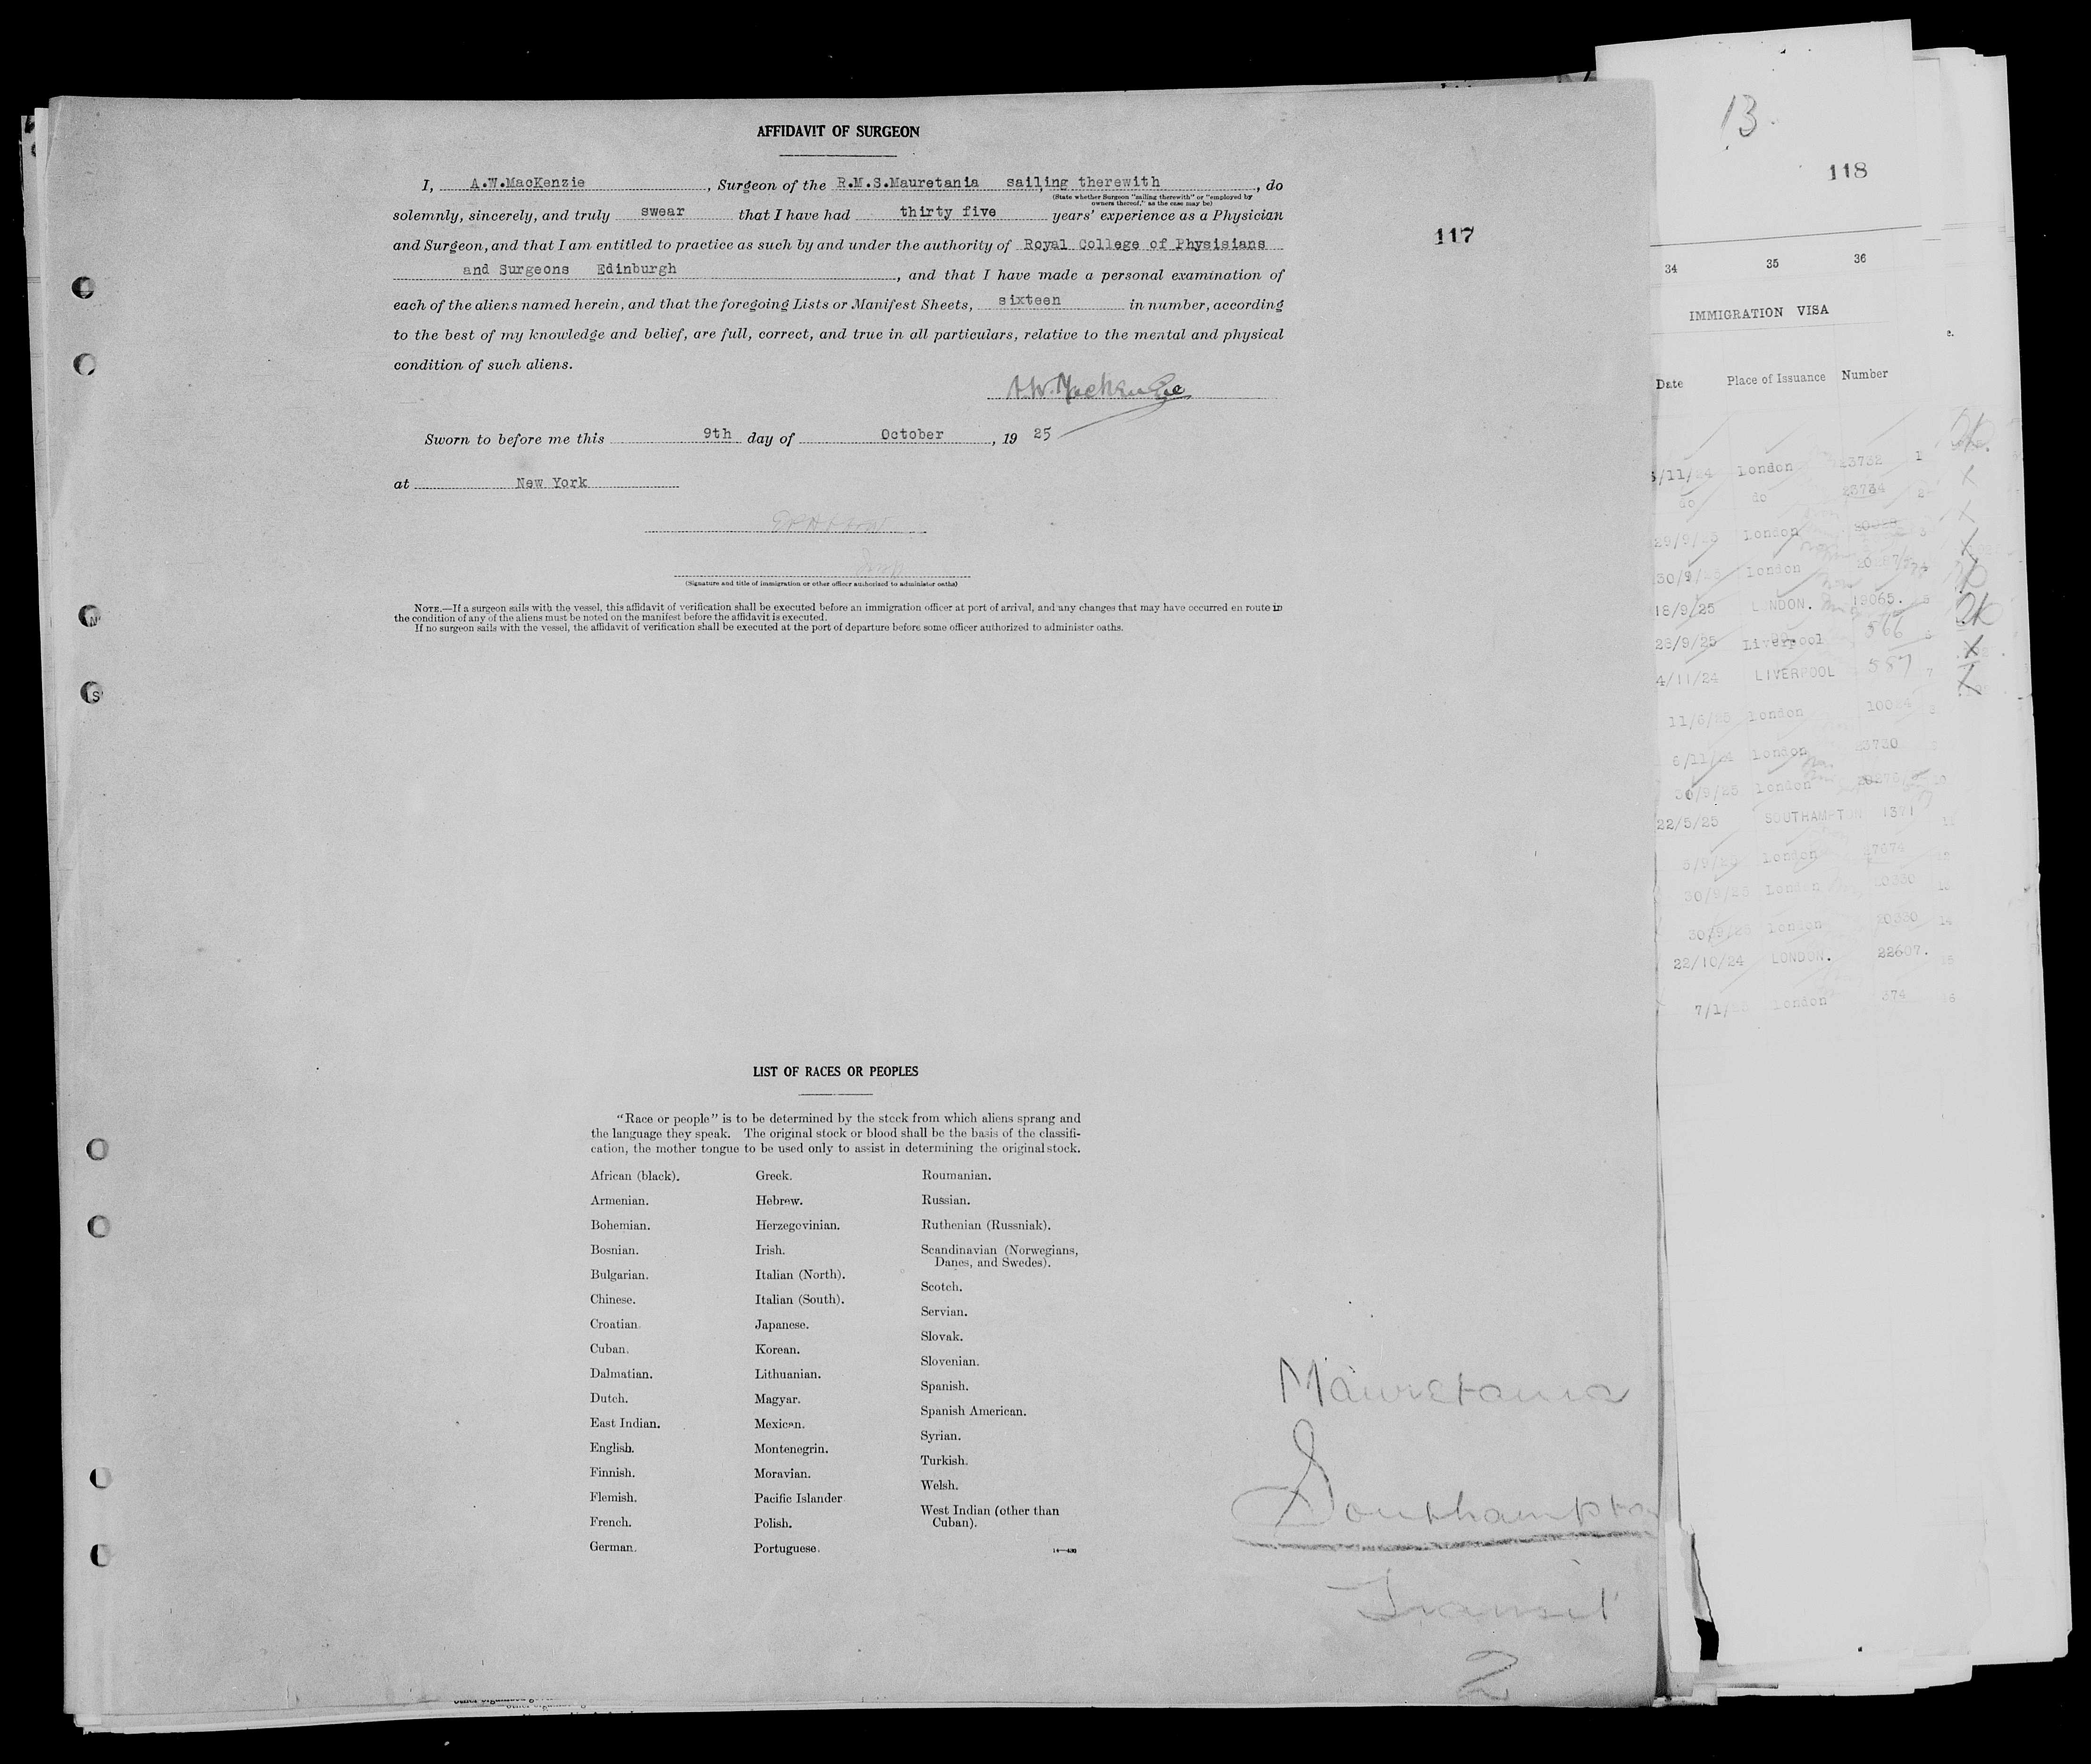 AFFIDAVIT OF SURGEON
I, A.W.MacKenzie, Surgeon of the R.M.S.Mauretania sailing therewith, do
(State whether Surgeon "sailing therewith" or "employed by
owners thereof," as the case may be)
solemnly, sincerely, and truly swear that I have had thirty five years' experience as a Physician
and Surgeon, and that I am entitled to practice as such by and under the authority of Royal College of Physisians
and Surgeons Edinburgh, and that I have made a personal examination of
each of the aliens named herein, and that the foregoing Lists or Manifest Sheets, sixteen in number, according
to the best of my knowledge and belief, are full, correct, and true in all particulars, relative to the mental and physical
condition of such aliens.
A.W.MacKenzie
Sworn to before me this 9th day of October, 19 25
at New York
(Signature and title of immigration or other officer authorized to administer oaths)
NOTE.—If a surgeon sails with the vessel, this affidavit of verification shall be executed before an immigration officer at port of arrival, and any changes that may have occurred en route in
the condition of any of the aliens must be noted on the manifest before the affidavit is executed.
If no surgeon sails with the vessel, the affidavit of verification shall be executed at the port of departure before some officer authorized to administer oaths.
117
LIST OF RACES OR PEOPLES
"Race or people" is to be determined by the stock from which aliens sprang and
the language they speak. The original stock or blood shall be the basis of the classifi-
cation, the mother tongue to be used only to assist in determining the original stock.
African (black).
Armenian.
Bohemian.
Bosnian.
Bulgarian.
Chinese.
Croatian.
Cuban.
Dalmatian.
Dutch.
East Indian.
English.
Finnish.
Flemish.
French.
German.
Greek.
Hebrew.
Herzegovinian.
Irish.
Italian (North).
Italian (South).
Japanese.
Korean.
Lithuanian.
Magyar.
Mexican.
Montenegrin.
Moravian.
Pacific Islander
Polish.
Portuguese.
Roumanian.
Russian.
Ruthenian (Russniak).
Scandinavian (Norwegians,
Danes, and Swedes).
Scotch.
Servian.
Slovak.
Slovenian.
Spanish.
Spanish American.
Syrian.
Turkish.
Welsh.
West Indian (other than
Cuban).
Mauretania
Southampton
Transit
2
13
118
34 35 36
IMMIGRATION VISA
Date Place of Issuance Number
/11/24 London 23732 1
do do 23734 2
29/9/ London 3
30/9/ London
18/9/25 LONDON. 19065. 5
28/9/25 Liverpool 566 6
4/11/24 LIVERPOOL 567 7
11/6/25 London
6/11/24 London 23730
30/9/25 London 10
22/5/25 SOUTHAMPTON 1371
London
30/9/25 London
London 20330 14
22/10/24 LONDON. 22607. 15
7/1/ London 374